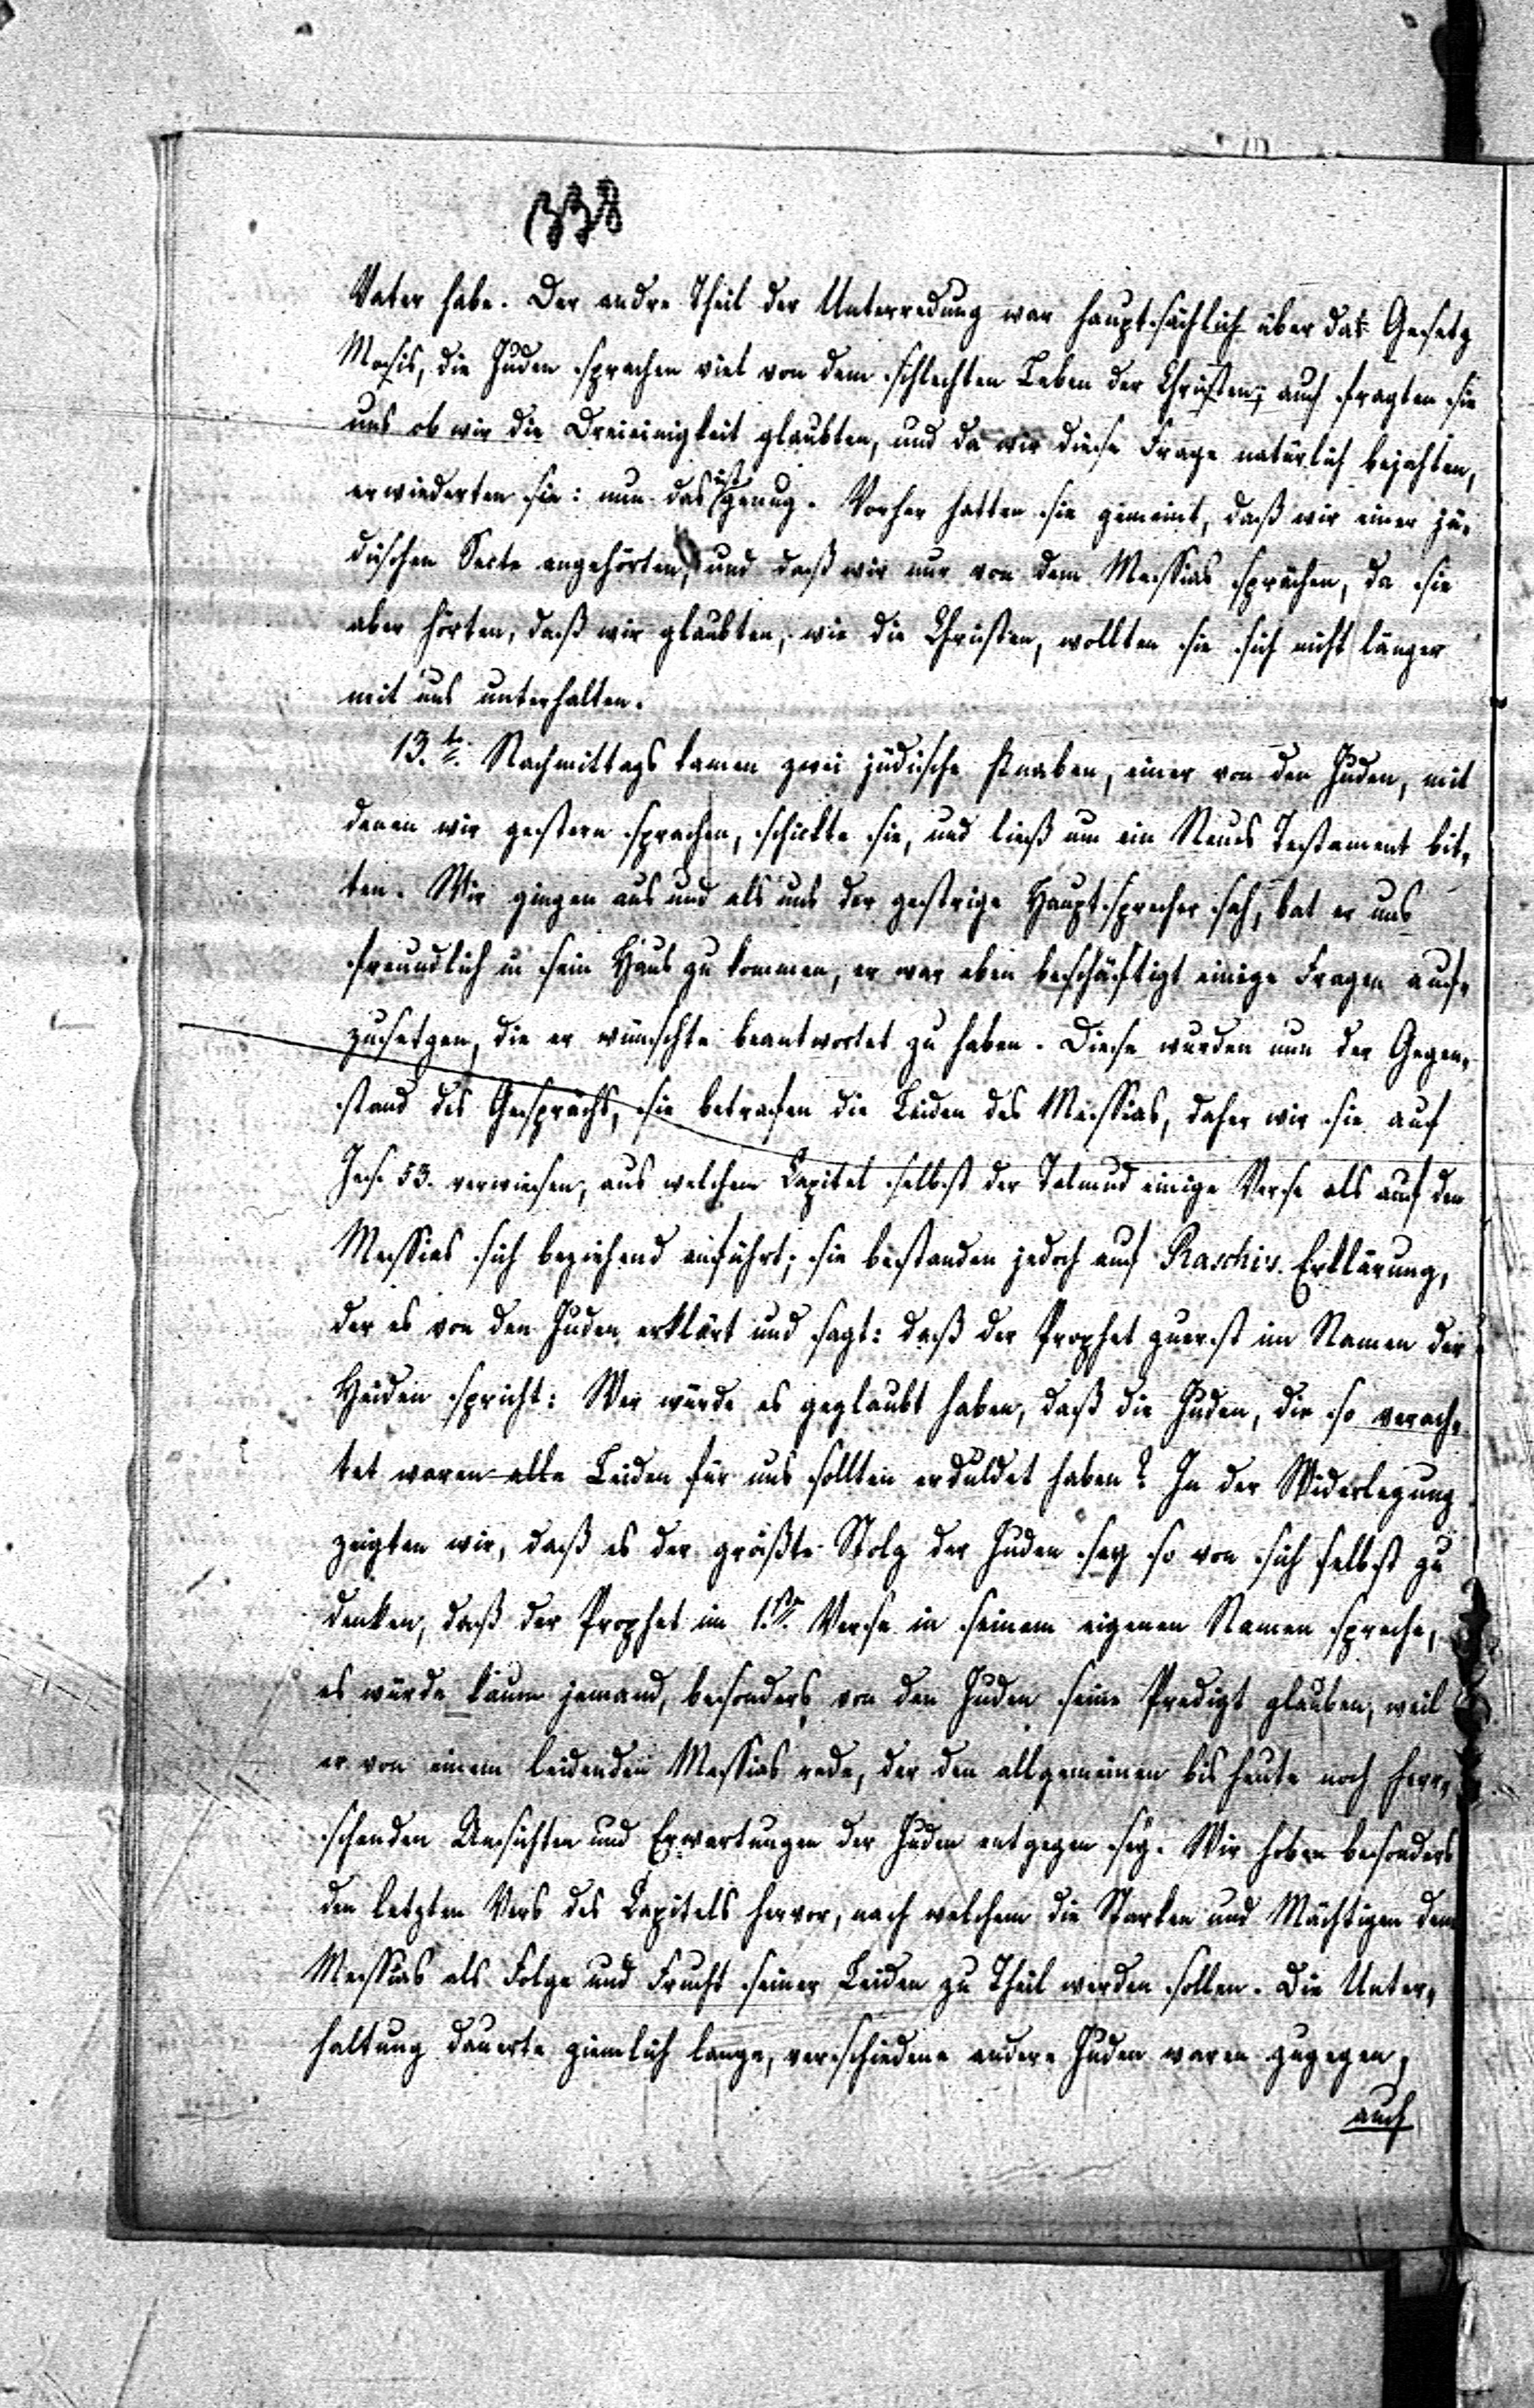 338
Vater habe. Der andre Theil der Unterredung war hauptsächlich über das Gesetz
Mosis, die Juden sprachen viel von dem schlechten Leben der Christen; auch fragten sie
uns ob wir die Dreieinigkeit glaubten, und da wir diese Frage natürlich bejahten,
erwiederten sie: nun das ist genug. Vorher hatten sie gemeint, daß wir einer jü-
dischen Secte angehörten, und daß wir nur von dem Messias sprächen, da sie
aber hörten, daß wir glaubten, wie die Christen, wollten sie sich nicht länger
mit uns unterhalten.
13.t. Nachmittags kamen zwei jüdische Knaben, einer von den Juden, mit
denen wir gestern sprachen, schickte sie, und ließ um ein Neues Testament bit-
ten. Wir gingen aus und als uns der gestrige Hauptsprecher sah, bat er uns
freundlich in sein Haus zu kommen, er war eben beschäftigt einige Fragen auf-
zusetzen, die er wünschte beantwortet zu haben. Diese wurden nun der Gegen-
stand des Gesprächs, sie betrafen die Leiden des Messias, daher wir sie auf
Jes. 53. verwiesen, aus welchem Capitel selbst der Talmud einige Verse als auf den
Messias sich beziehend anführt; sie bestanden jedoch auf Raschis Erklärung,
der es von den Juden erklärt und sagt: daß der Prophet zuerst im Namen der
Heiden spricht: Wer würde es geglaubt haben, daß die Juden, die so verach-
tet waren alle Leiden für uns sollten erduldet haben? In der Widerlegung
zeigten wir, daß es der größte Stolz der Juden sey so von sich selbst zu
denken, daß der Prophet im 1.sten Verse in seinem eigenen Namen spreche,
es würde kaum jemand, besonders von den Juden seine Predigt glauben, weil
er von einem leidenden Messias rede, der den allgemeinen bis heute noch herr-
schenden Ansichten und Erwartungen der Juden entgegen sey. Wir hoben besonders
den letzten Vers des Capitels hervor, nach welchem die Starken und Mächtigen dem
Messias als Folge und Frucht seiner Leiden zu Theil werden sollen. Die Unter-
haltung dauerte ziemlich lange, verschiedene andere Juden waren zugegen,
auch